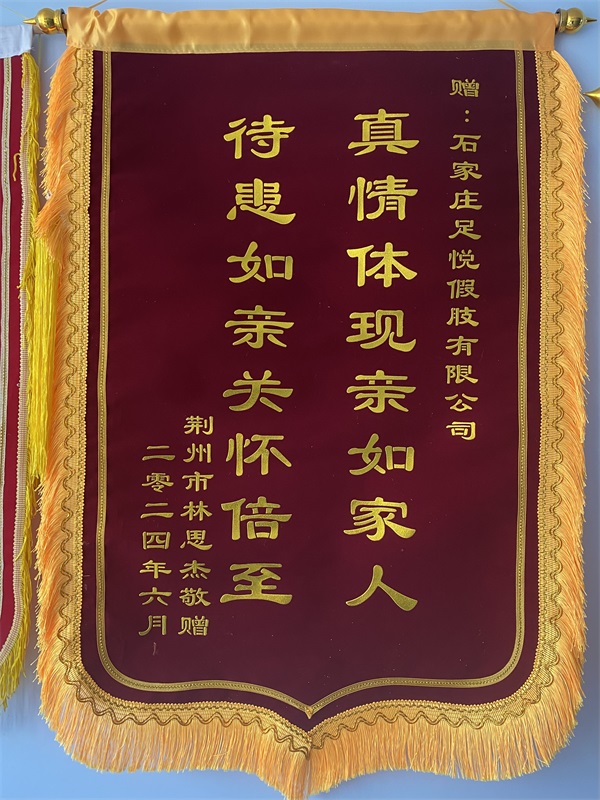 赠：石家庄足悦假肢有限公司
真情体现亲如家人
待患如亲关怀倍至
荆州市林思杰敬赠
二零二四年六月